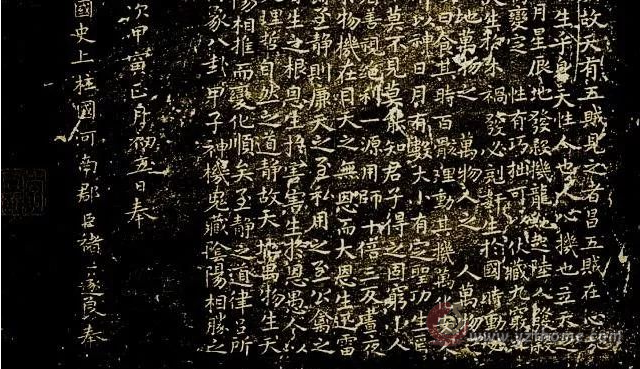 故天有五賊見之者昌五賊在心
生乎身天性人也人心機也立天之
月星辰地發殺機龍蛇起陸人發殺
變定 性有巧拙可以伏藏九竅
火生於木禍發必剋奸生於國時動必
地萬物之 萬物人之 人萬物
曰食其時百骸理動其機萬化安人
以神日月有數大小有定聖功生焉
莫不見莫能知君子得之固窮小人
善視絕利一源用師十倍三反晝夜
於物機在目天之無恩而大恩生迅雷
至靜則廉天之至私用之至公禽之
生之根恩生於害害生於恩愚人以
理哲自然之道靜故天地萬物生天
陽相推而變化順矣至靜之道律呂所
象八卦甲子神機鬼藏陰陽相勝之
次甲寅正月初五日奉
國史上柱國河南郡臣褚遂良奉